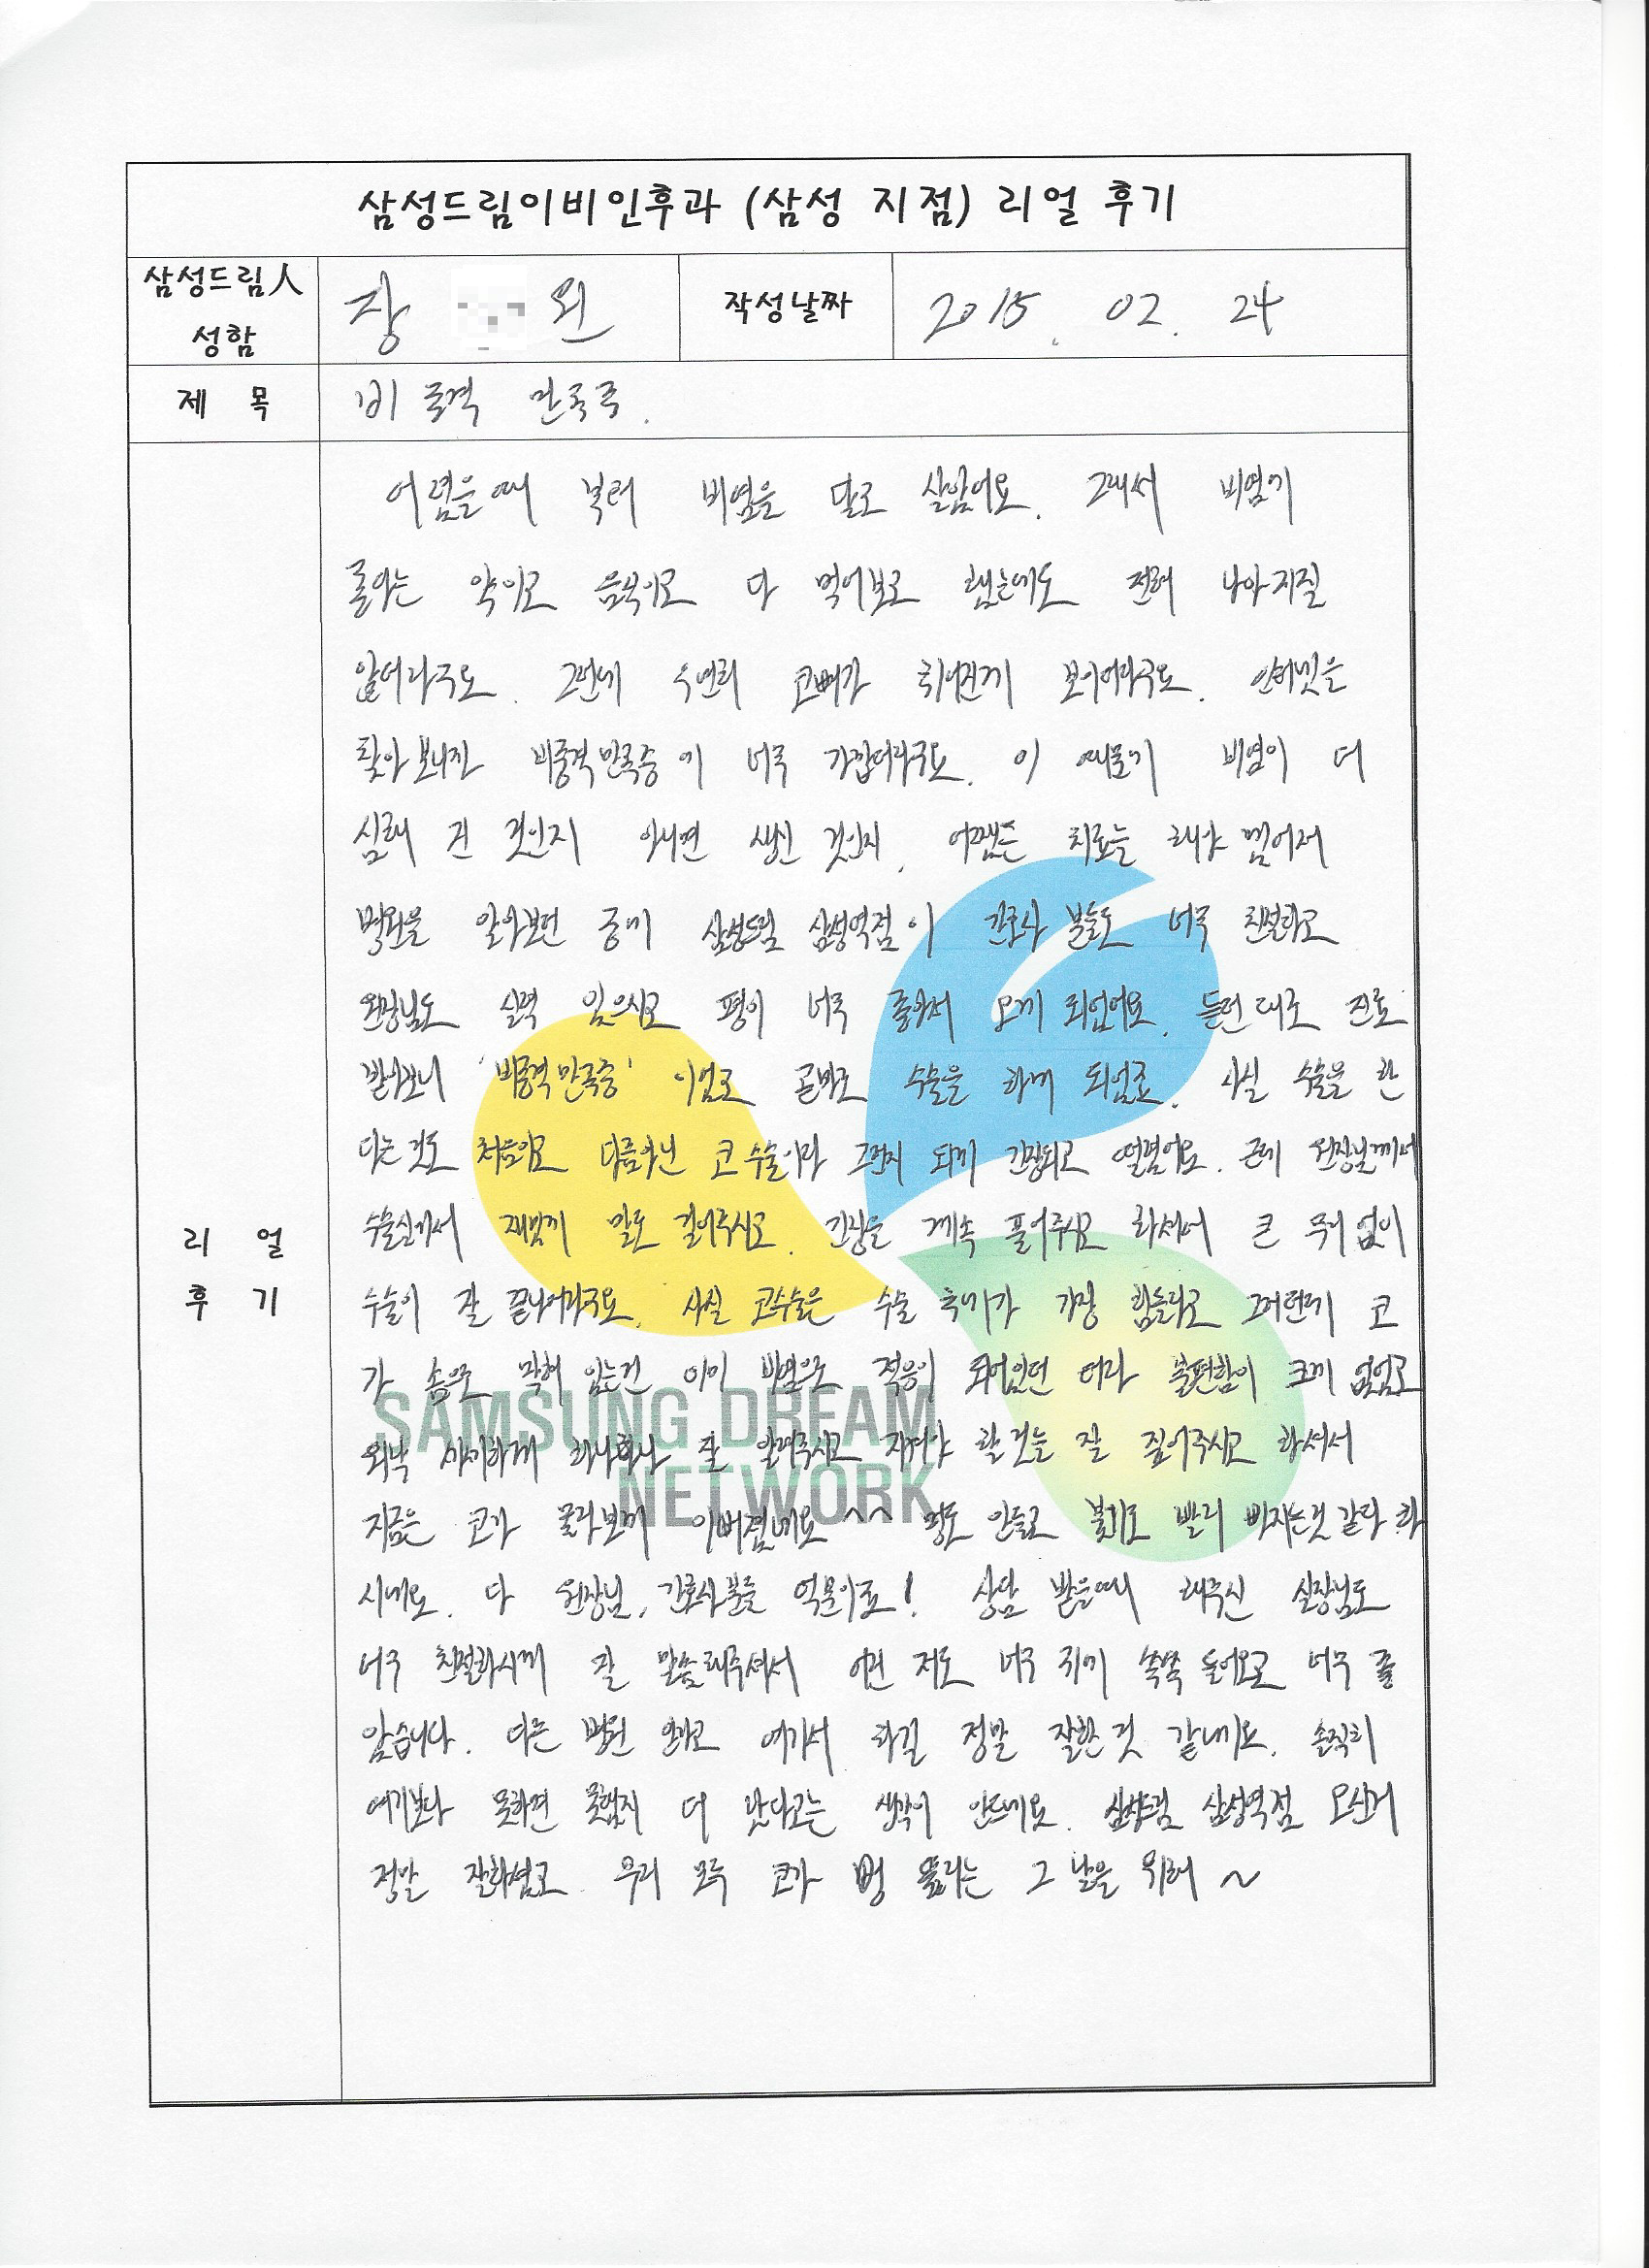 삼성드림이비인후과 (삼성 지점) 리얼 후기
삼성드림人 성함
장 원
작성날짜
2015. 02. 24
제 목
비중격 만곡증.
리 얼 후 기
어렸을때 부터 비염을 달고 살았어요. 그래서 비염에
좋다는 약이고 음식이고 다 먹어보고 했는데도 전혀 나아지질
않더라구요. 그런데 우연히 코뼈가 휘어진게 보이더라구요. 인터넷을
찾아보니깐 비중격만곡증에 너무 가깝더라구요. 이 때문에 비염이 더
심해 진 것인지 아니면 생긴 것인지. 어쨌든 치료는 해야 겠어서
병원을 알아보던 중에 삼성드림 삼성역점이 간호사 분들도 너무 친절하고
원장님도 실력 있으시고 평이 너무 좋아서 오게 되었어요. 듣던대로 진료
받아보니 '비중격만곡증' 이었고 곧바로 수술을 하게 되었죠. 사실 수술을 한
다는것도 처음이고 다름아닌 코 수술이라 그런지 되게 긴장되고 떨렸어요. 근데 원장님께서
수술실에서 재밌게 말도 걸어주시고. 긴장을 계속 풀어주시고 하셔서 큰 무리 없이
수술이 잘 끝나더라구요. 사실 코수술은 수술 후에가 가장 힘들다고 그러던데 코
가 솜으로 막혀 있는건 이미 비염으로 적응이 되어있던 터라 불편함이 크게 없었고
워낙 하나하나 잘 알려주시고 지켜야 할것들 잘 짚어주시고 하셔서
지금은 코가 몰라보게 이뻐졌네요 ^^ 멍도 안들고 붓기도 빨리 빠지는것 같다 하
시네요. 다 원장님, 간호사분들 덕분이죠! 상담 받을때 해주신 실장님도
너무 친절하시게 잘 말씀해주셔서 어린 저도 너무 귀에 쏙쏙 들어오고 너무 좋
았습니다. 다른 병원 안가고 여기서 하길 정말 잘한것 같네요. 솔직히
여기보다 못하면 못했지 더 낫다고는 생각이 안드네요. 삼성드림 삼성역점 오신거
정말 잘하셨고 우리 모두 코가 뻥 뚫리는 그 날을 위해 ~
SAMSUNG DREAM
NETWORK